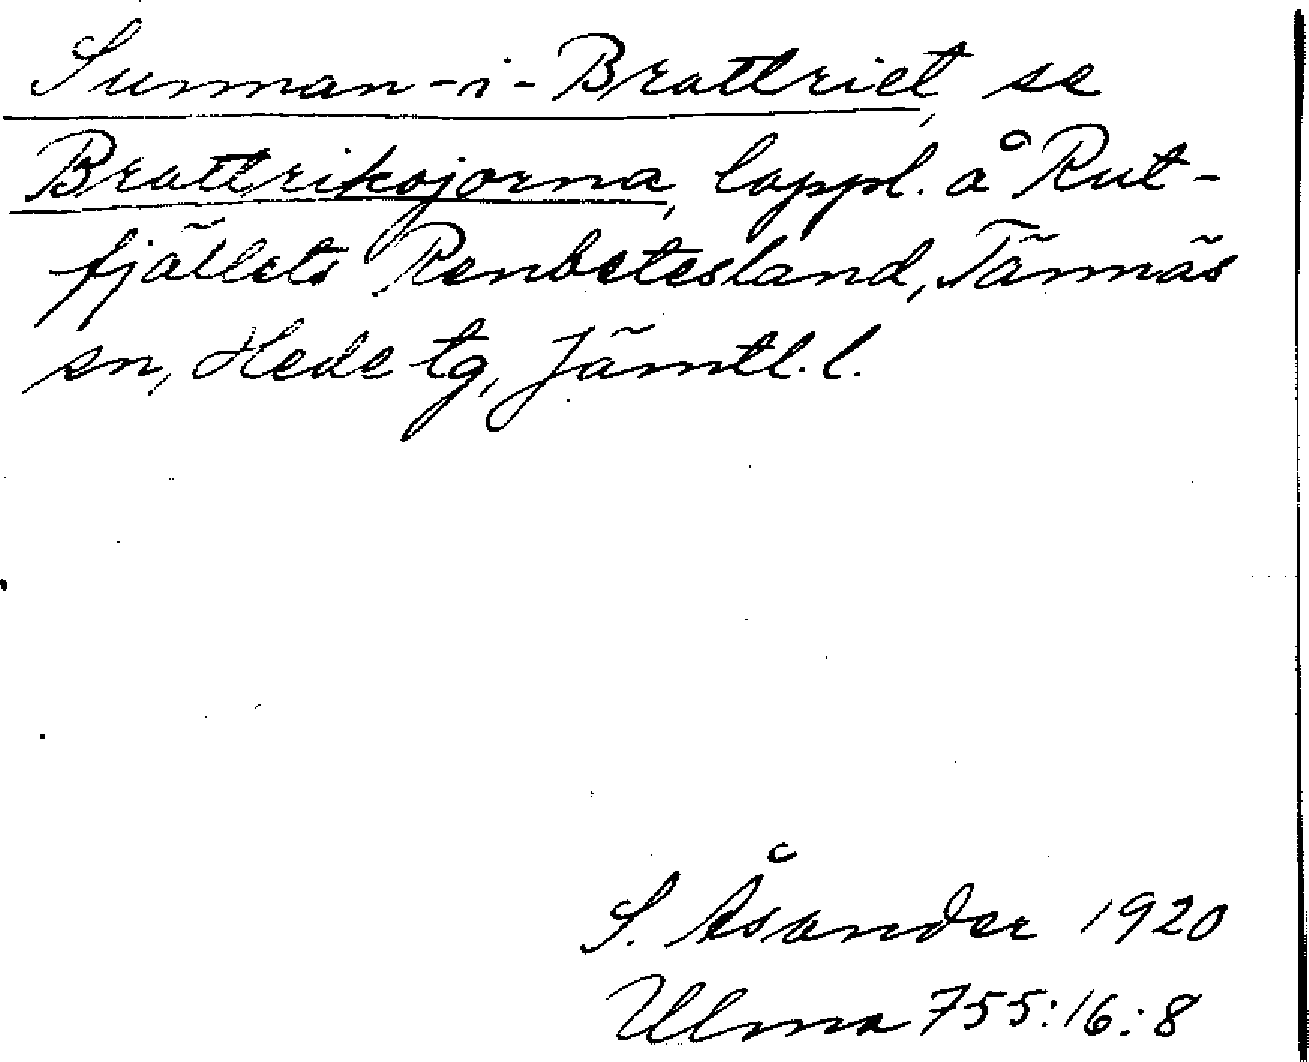 Sunnan-i-Brattriet, se
Brattrikojorna, lappl. å Rut-
fjällets Renbetesland, Tännäs
sn, Hede tg, Jämtl. l.
S. Åsander 1920
Ulma 755:16:8